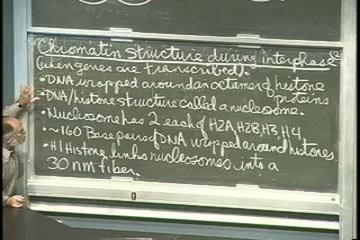 Chromatin Structure during interphase
(when genes are transcribed).
• DNA wrapped around an octamer of histone proteins
• DNA/histone structure called a nucleosome.
• Nucleosome has 2 each of H2A, H2B, H3, H4
• ~160 Base pairs of DNA wrapped around histones.
• H1 Histone links nucleosomes into a
30 nm fiber.